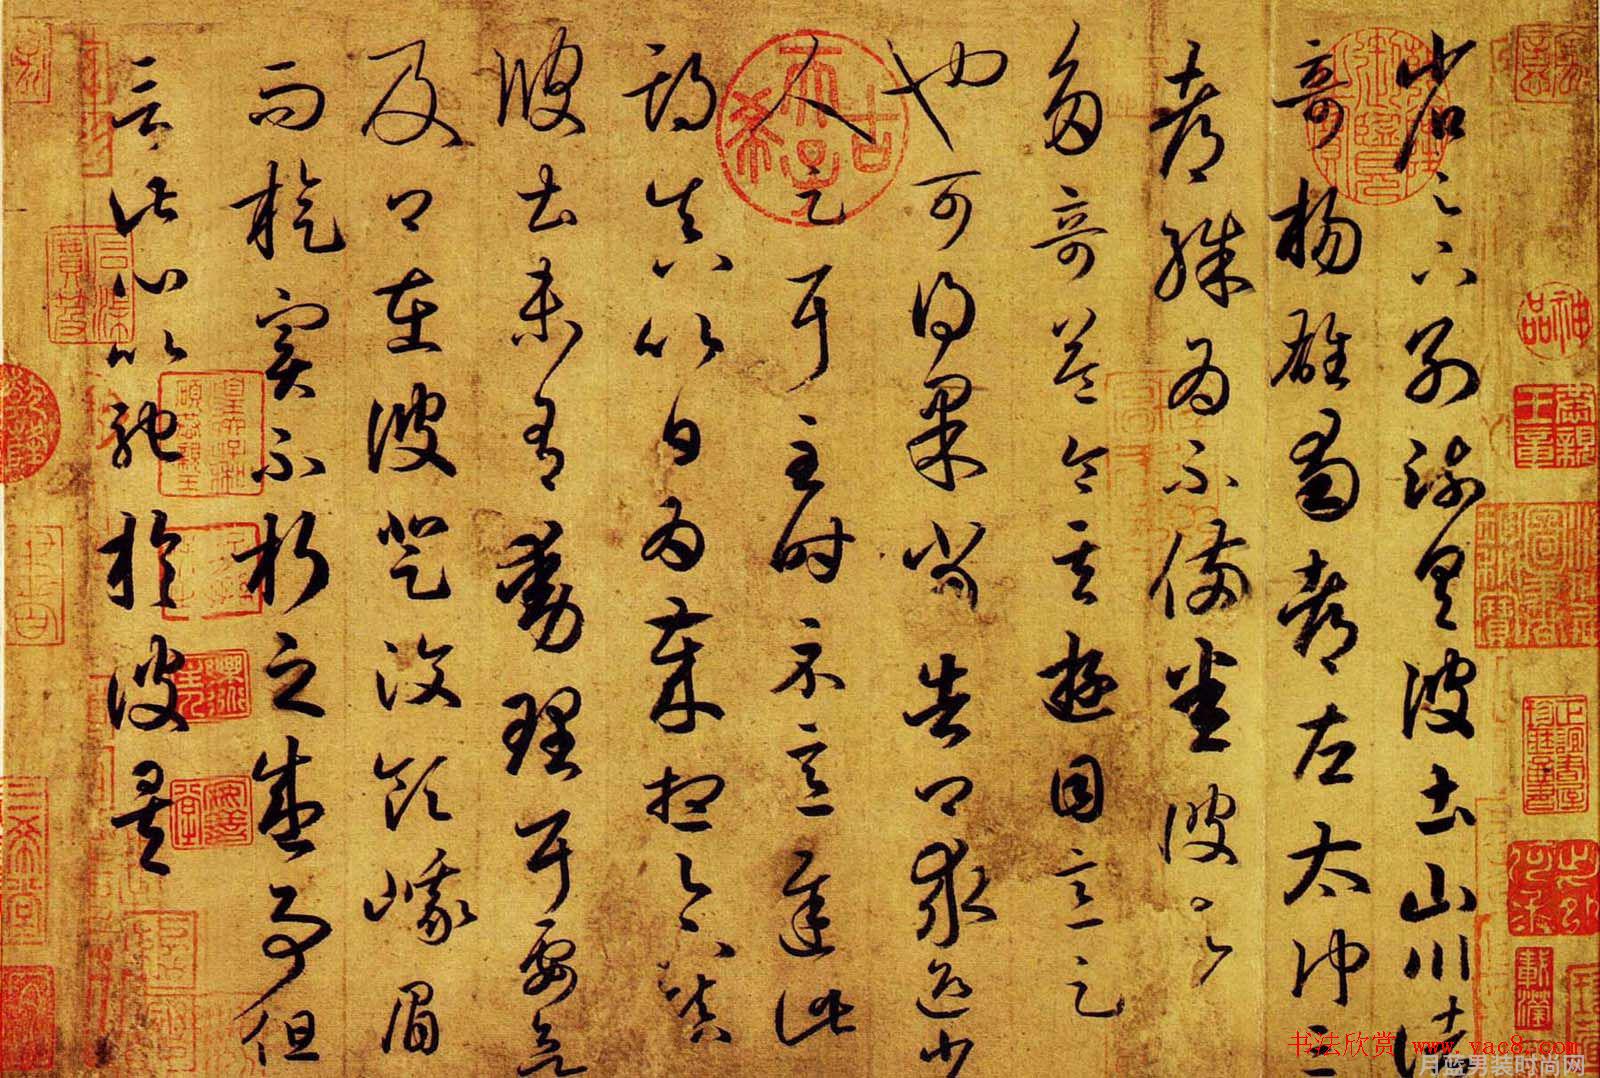 省足下別疏具彼土山川諸
奇楊雄蜀都左太沖三
都殊為不備悉彼故為
多奇益令其遊目意足
也可得果當告卿求迎少
人足耳至時示意遲此
期真以日為歲想足下鎮
彼土未有動理耳要欲
及卿在彼登汶領峨眉
而旋實不朽之盛事但
言此心以馳於彼矣
古希天子
神品
三希堂
书法欣赏 www.yac8.com
月蓝男装时尚网